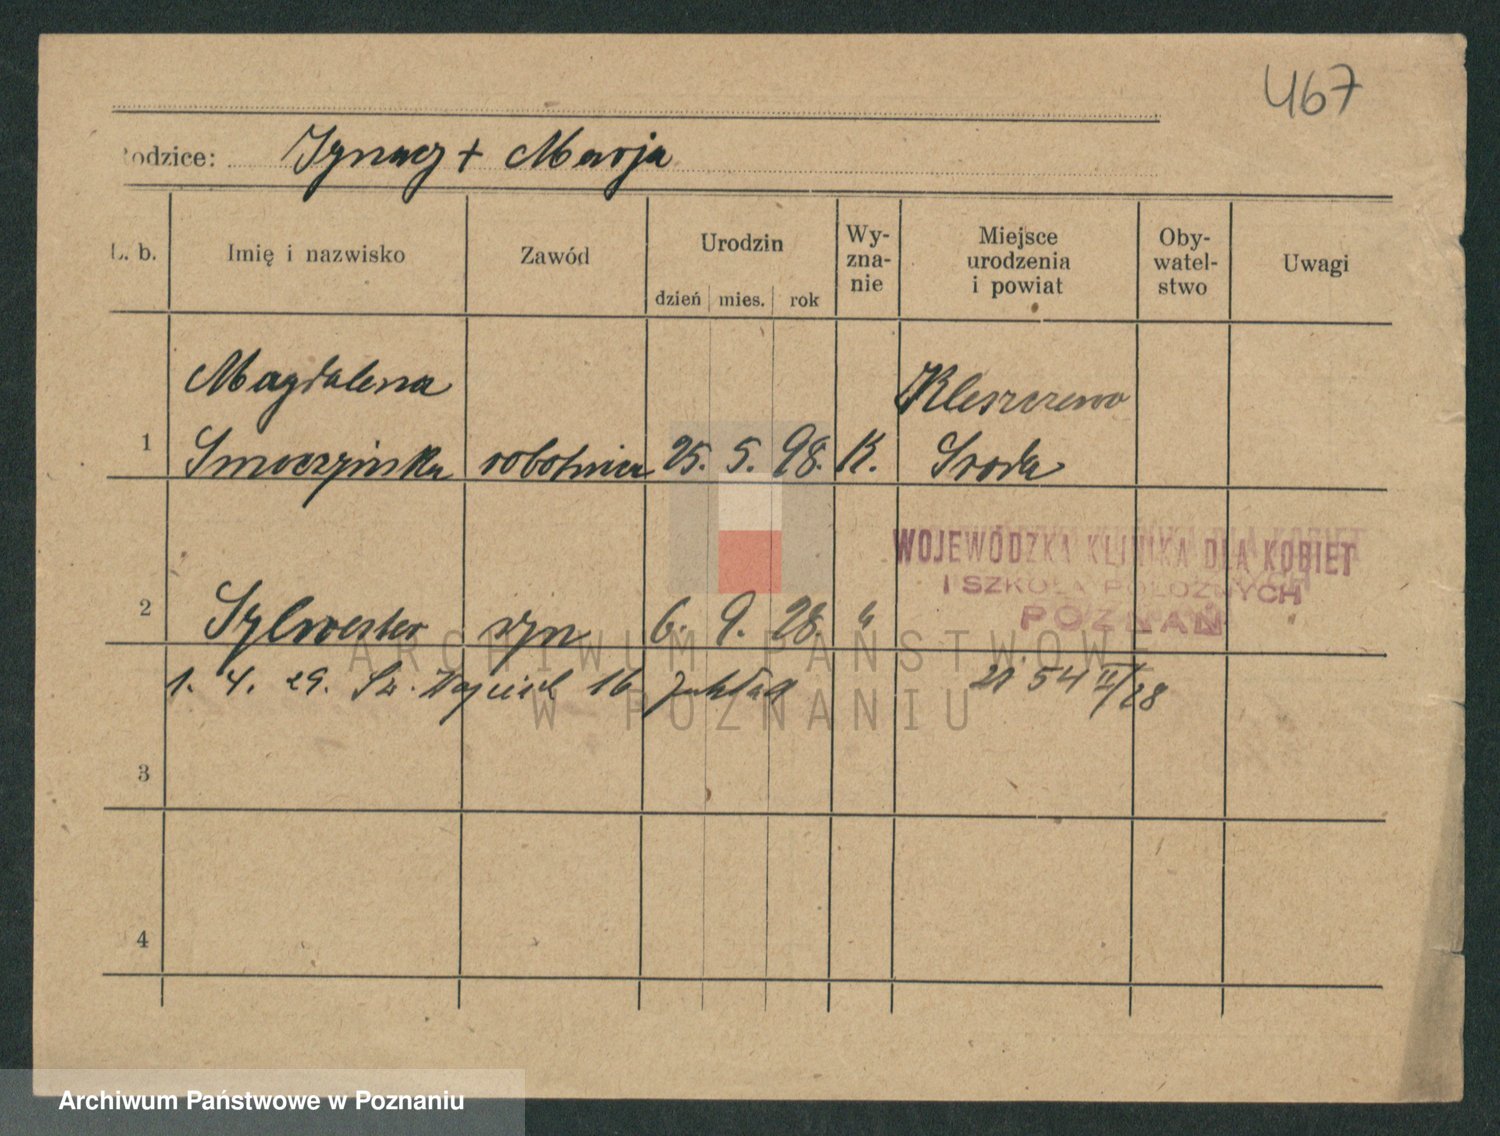 467
Rodzice: Ignacy + Marja
L. b. Imię i nazwisko Zawód Urodzin dzień mies. rok Wy-zna-nie Miejsce urodzenia i powiat Oby-watel-stwo Uwagi
Magdalena Kleszczewo
1 Smoczyńska robotnica 25. 5. 98. K. Sroda
WOJEWÓDZKA KLINIKA DLA KOBIET
I SZKOŁA POŁOŻNYCH
POZNAŃ
2 Sylwester syn 6. 9. 28. "
ARCHIWUM PAŃSTWOWE
1. 4. 29. Św. Wojciech 16 Zakład 21 54 II/28
W POZNANIU
3
4
Archiwum Państwowe w Poznaniu